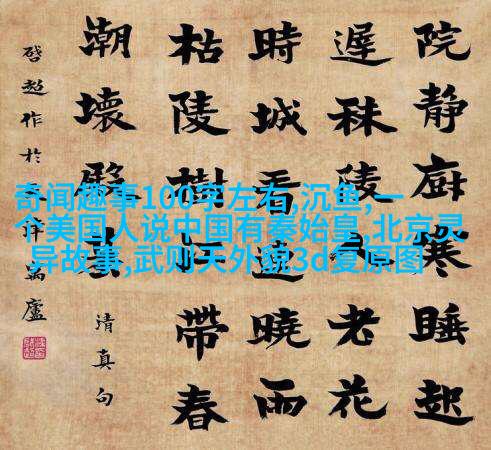 奇闻趣事100字左右,沉鱼,一
个美国人说中国有秦始皇,北京灵
异故事,武则天外貌3d复原图
院靜廚寒睡起
遲秣陵老花
時城看曉雨
枯陵樹帶春
潮壞
清真句
啓超作於廬